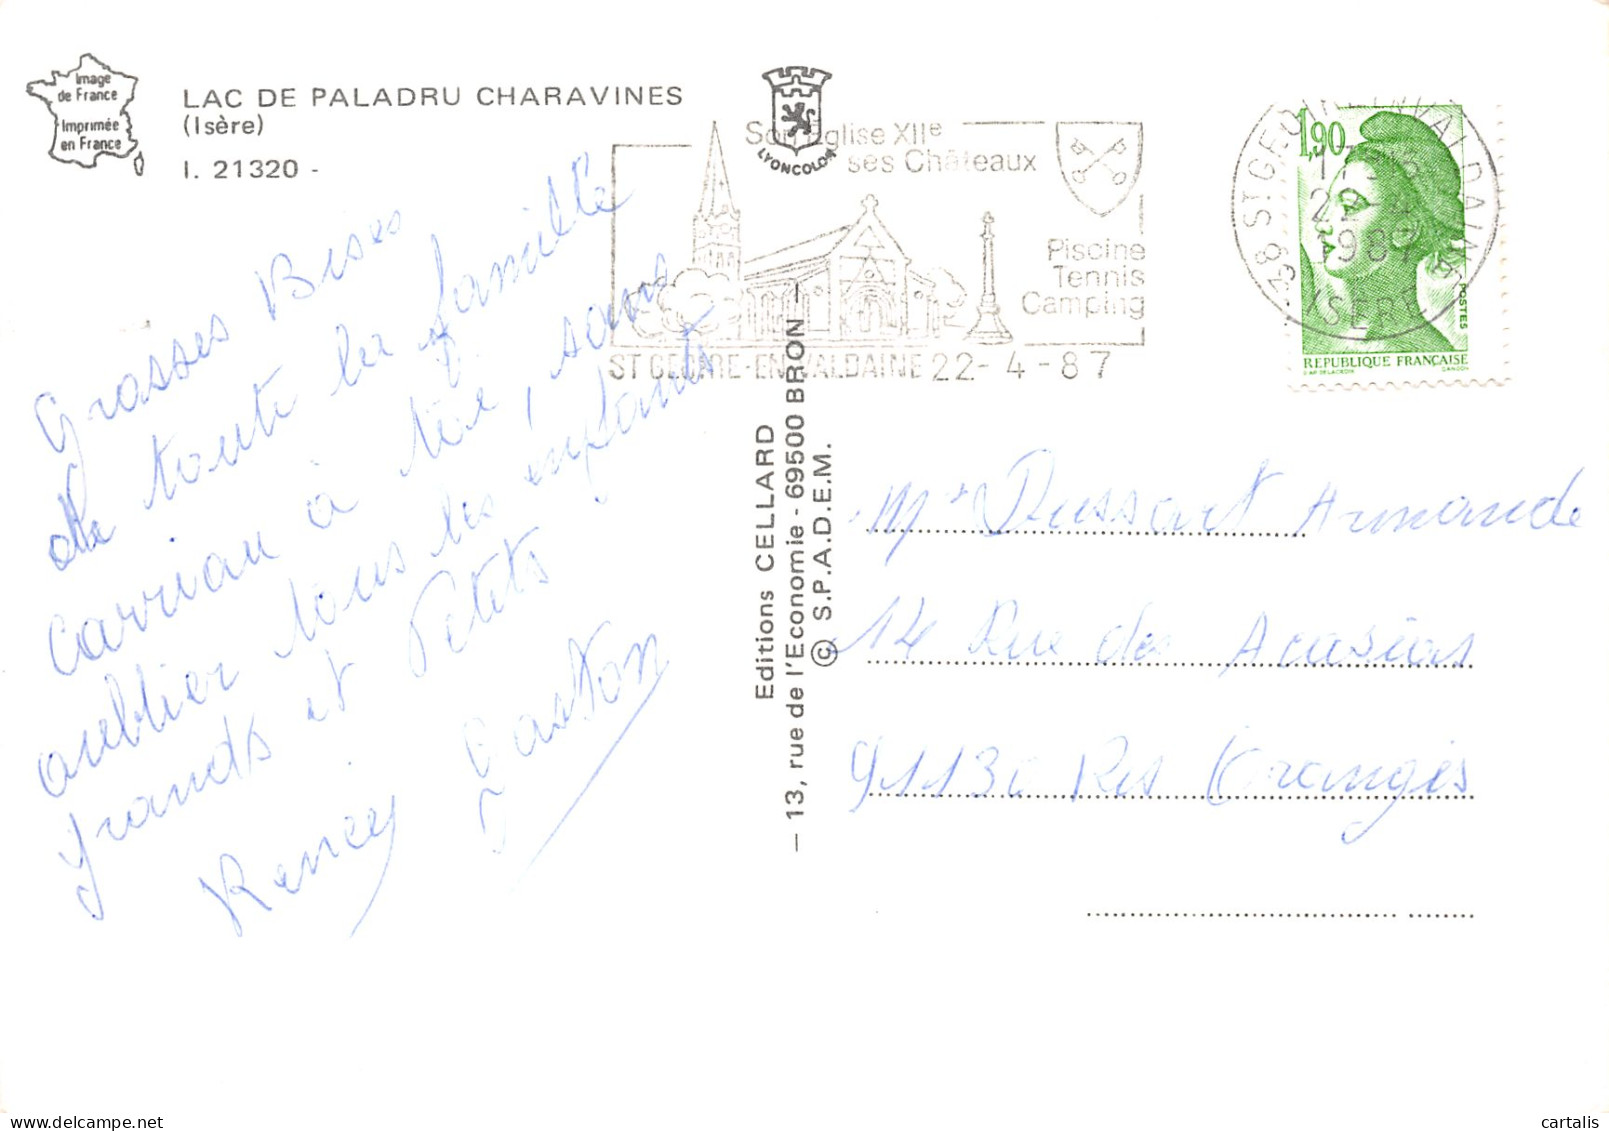 Image
de France
Imprimée
en France
LAC DE PALADRU CHARAVINES
(Isère)
I. 21320 -
LYONCOLOR
Son Église XIIe
ses Châteaux
Piscine
Tennis
Camping
ST GEOIRE-EN-VALDAINE 22-4-87
38 ST GEOIRE EN VALDAINE
1987
ISERE
1,90
POSTES
REPUBLIQUE FRANÇAISE
D'AP. DELACROIX GANDON
Grosses Bises
de toute la famille
Carrian à tée, sans
oublier tous les enfants
grands et Petits
Gaston
Editions CELLARD
— 13, rue de l'Economie - 69500 BRON —
© S.P.A.D.E.M.
Dussart Armande
14 Rue des Acasias
91130 Ris Orangis
cartalis